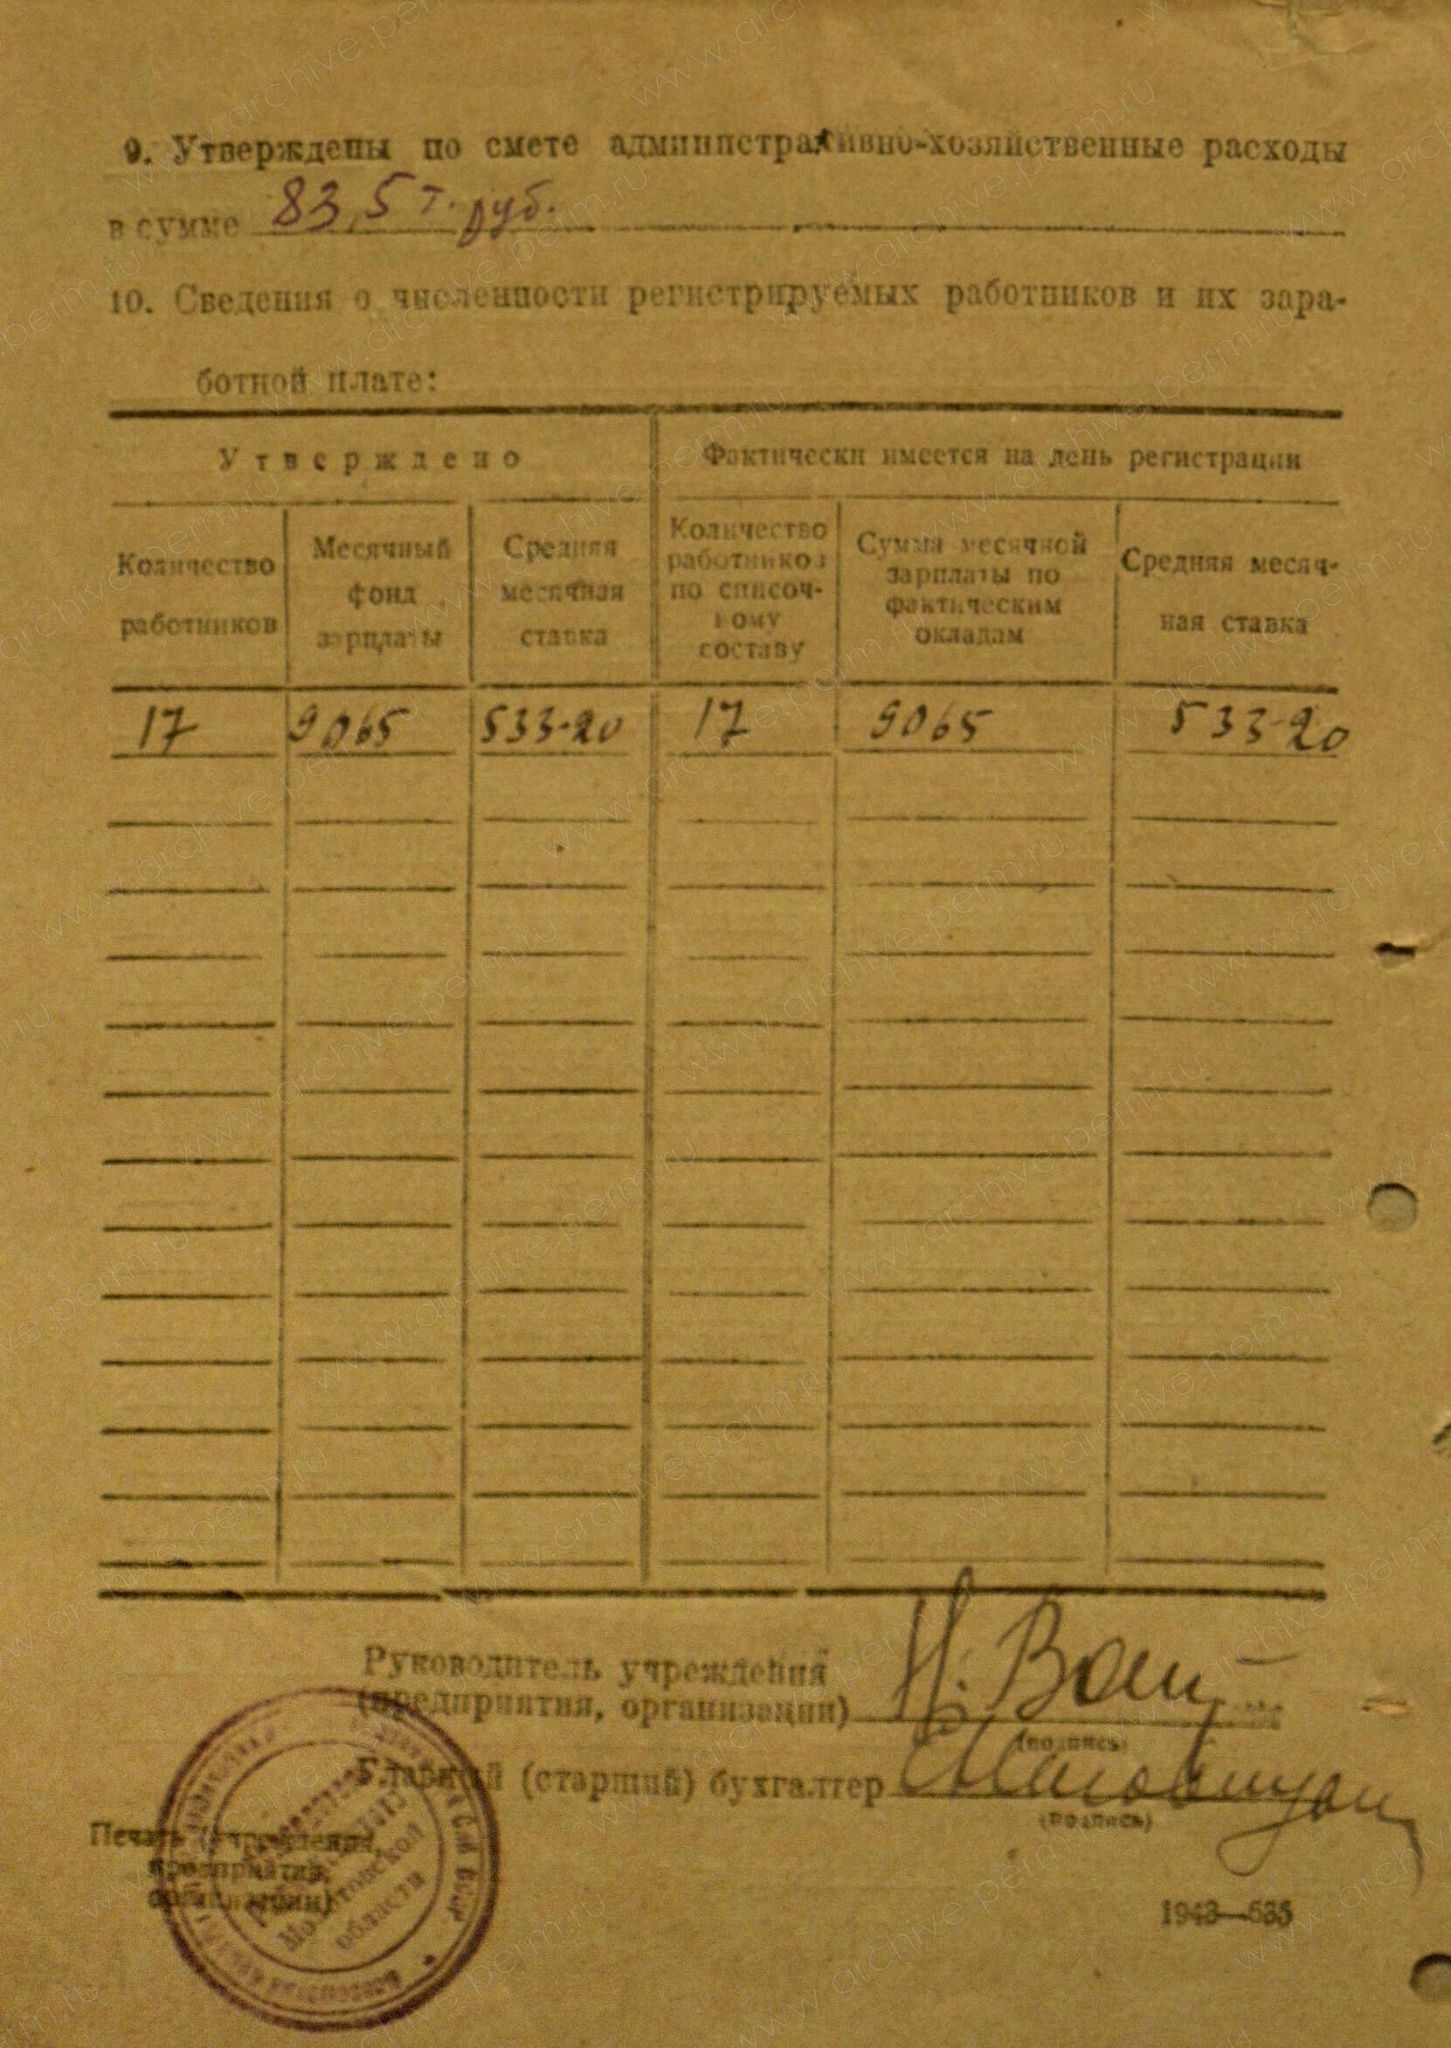 9. Утверждены по смете административно-хозяйственные расходы
в сумме 83,5 т. руб.
10. Сведения о численности регистрируемых работников и их зара-
ботной плате:
Утверждено
Фактически имеется на день регистрации
Количество
работников
Месячный
фонд
зарплаты
Средняя
месячная
ставка
Количество
работников
по списоч-
ному
составу
Сумма месячной
зарплаты по
фактическим
окладам
Средняя месяч-
ная ставка
17 9065 533-20 17 9065 533-20
Руководитель учреждения
(предприятия, организации)
(подпись)
Главный (старший) бухгалтер
(подпись)
Печать (учреждения,
предприятия,
организации)
Молотовской
области
1943—635
www.archive.perm.ru